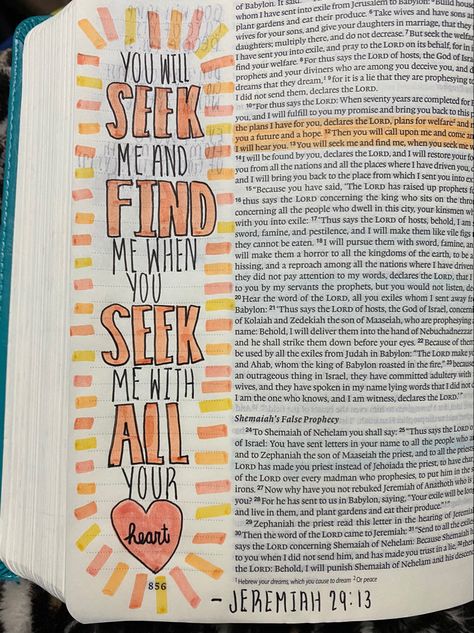 YOU WILL
SEEK
ME AND
FIND
ME WHEN
YOU
SEEK
ME WITH
ALL
YOUR
heart
856
- JEREMIAH 29:13
of Babylon. It said:
whom I have sent into exile from Jerusalem to Babylon:
plant gardens and eat their produce. 6 Take wives and have sons
wives for your sons, and give your daughters in marriage, that they
daughters; multiply there, and do not decrease. 7 But seek the welfare
I have sent you into exile, and pray to the LORD on its behalf, for in
find your welfare. 8 For thus says the LORD of hosts, the God of Israel
prophets and your diviners who are among you deceive you, and d
dreams that they dream, 9 for it is a lie that they are prophesying to
I did not send them, declares the LORD.
10 "For thus says the LORD: When seventy years are completed for
you, and I will fulfill to you my promise and bring you back to this p
the plans I have for you, declares the LORD, plans for welfare and
you a future and a hope. 12 Then you will call upon me and come an
I will hear you. 13 You will seek me and find me, when you seek me w
14 I will be found by you, declares the LORD, and I will restore your f
you from all the nations and all the places where I have driven you, d
and I will bring you back to the place from which I sent you into ex
15 "Because you have said, 'The LORD has raised up prophets f
16 thus says the LORD concerning the king who sits on the thron
concerning all the people who dwell in this city, your kinsmen w
with you into exile: 17 'Thus says the LORD of hosts, behold, I am
sword, famine, and pestilence, and I will make them like vile figs
they cannot be eaten. 18 I will pursue them with sword, famine, an
will make them a horror to all the kingdoms of the earth, to be a
hissing, and a reproach among all the nations where I have driven
they did not pay attention to my words, declares the LORD, that I
to you by my servants the prophets, but you would not listen, dec
20 Hear the word of the LORD, all you exiles whom I sent away f
Babylon: 21 'Thus says the LORD of hosts, the God of Israel, concern
of Kolaiah and Zedekiah the son of Maaseiah, who are prophesying
name: Behold, I will deliver them into the hand of Nebuchadnezzar
and he shall strike them down before your eyes. 22 Because of them
be used by all the exiles from Judah in Babylon: "The LORD make y
and Ahab, whom the king of Babylon roasted in the fire," 23 because
an outrageous thing in Israel, they have committed adultery with
wives, and they have spoken in my name lying words that I did not c
I am the one who knows, and I am witness, declares the LORD.'"
Shemaiah's False Prophecy
24 To Shemaiah of Nehelam you shall say: 25 "Thus says the LORD o
of Israel: You have sent letters in your name to all the people who a
and to Zephaniah the son of Maaseiah the priest, and to all the priests
LORD has made you priest instead of Jehoiada the priest, to have char
of the LORD over every madman who prophesies, to put him in the s
irons. 27 Now why have you not rebuked Jeremiah of Anathoth who is
you? 28 For he has sent to us in Babylon, saying, "Your exile will be long
and live in them, and plant gardens and eat their produce."'"
29 Zephaniah the priest read this letter in the hearing of Jeremiah
30 Then the word of the LORD came to Jeremiah: 31 "Send to all the exi
says the LORD concerning Shemaiah of Nehelam: Because Shemaiah
to you when I did not send him, and has made you trust in a lie,
the LORD: Behold, I will punish Shemaiah of Nehelam and his descen
1 Hebrew your dreams, which you cause to dream 2 Or peace